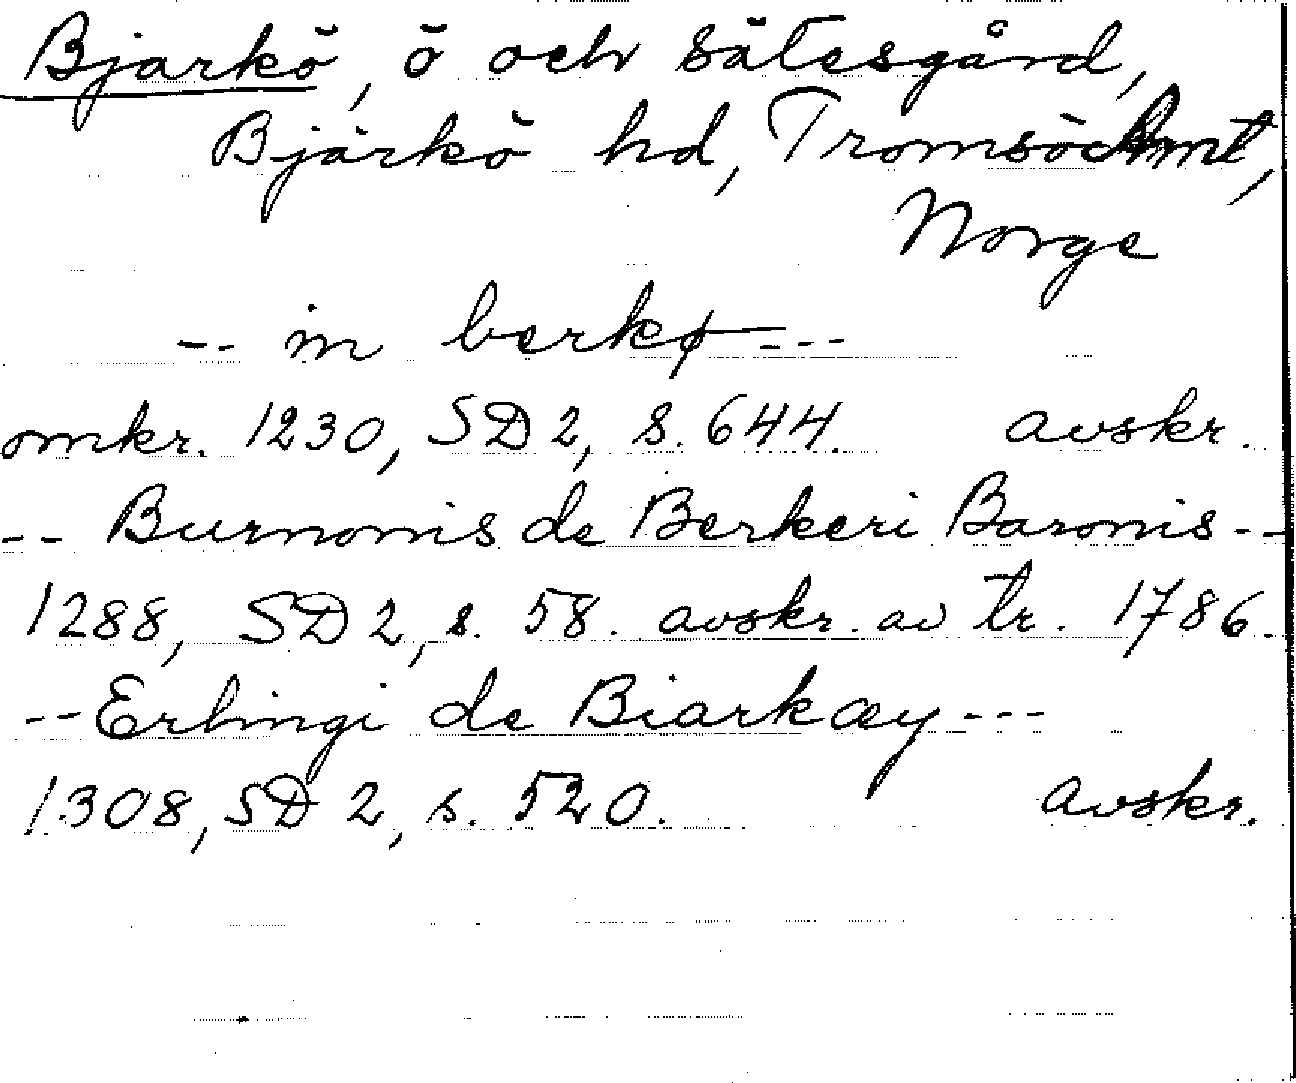 Bjarkö, ö och sätesgård,
Bjärkö hd, Tromsö Amt,
Norge
-- in berkø ---
omkr. 1230, SD 2, s. 644. avskr.
-- Burnonis de Berkeri Baronis --
1288, SD 2, s. 58. avskr. av tr. 1786.
-- Erlingi de Biarkæy ---
1308, SD 2, s. 520. avskr.